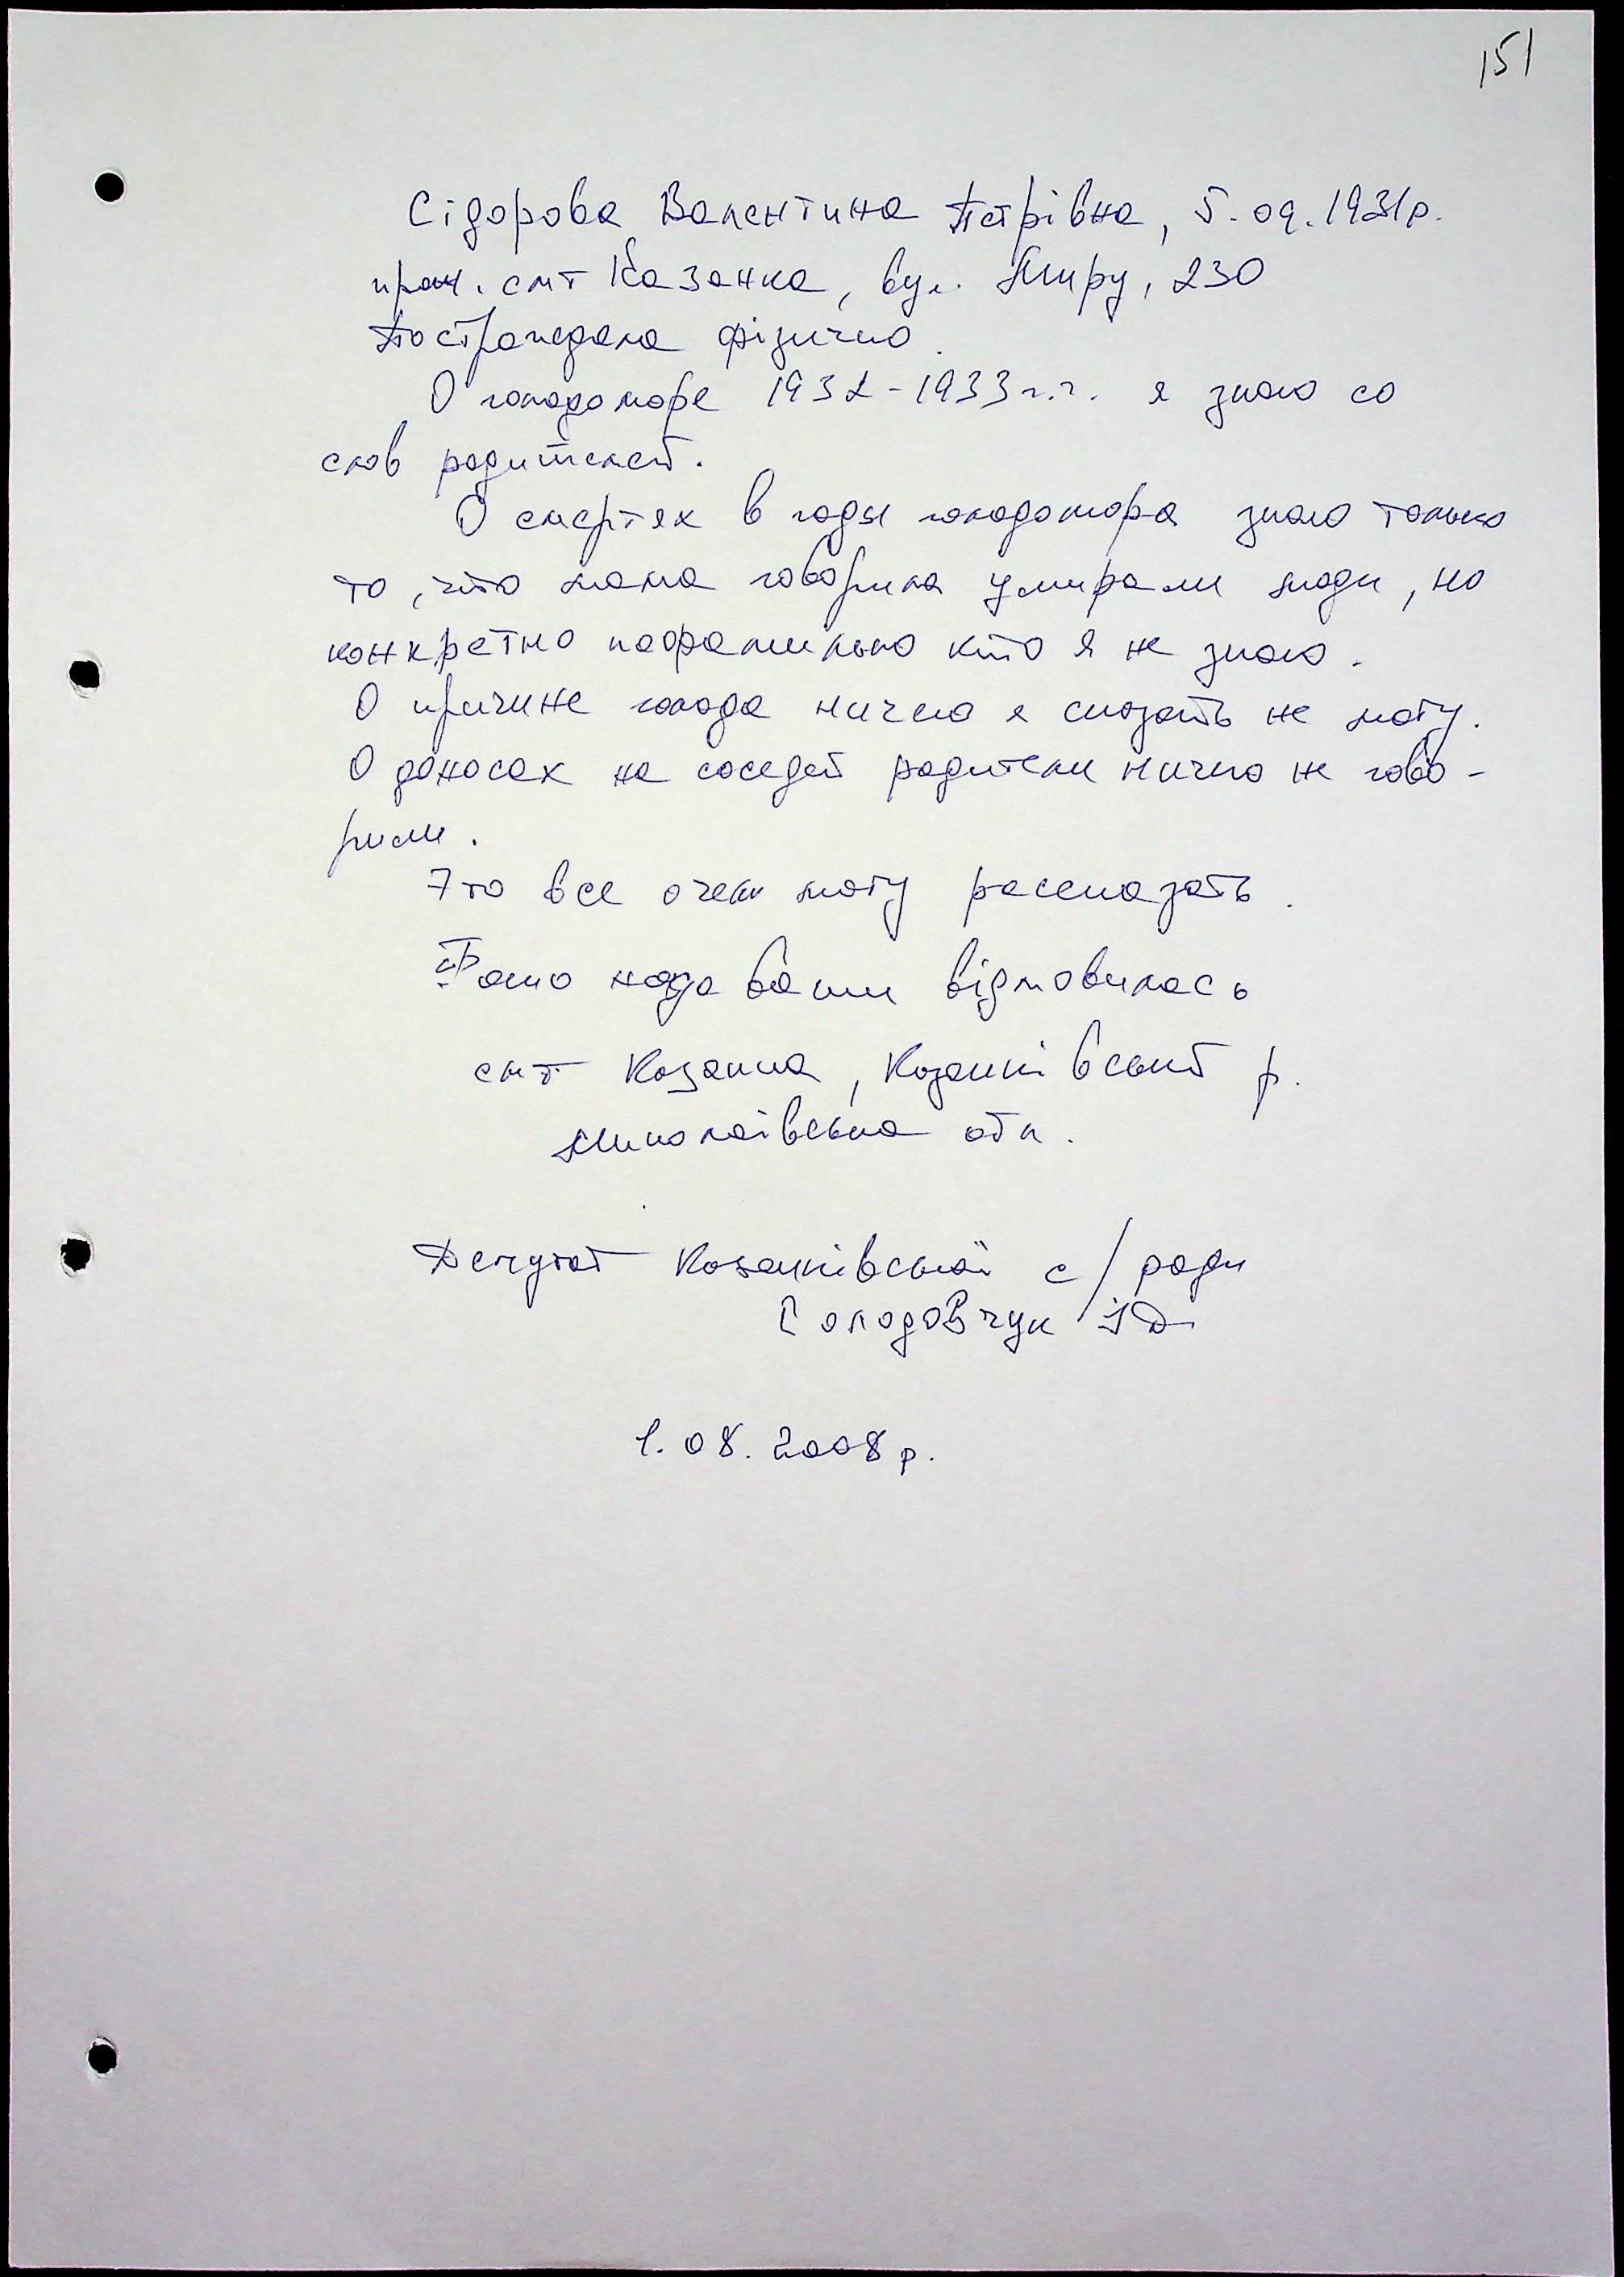 151
Сідорова Валентина Петрівна, 5.09.1931р.
прож. смт Казанка, вул. Миру, 230
Постраждала фізично.
О голодоморе 1932-1933 г.г. я знаю со
слов родителей.
О смертях в годы голодомора знаю только
то, что мама говорила умирали люди, но
конкретно пофамильно кто я не знаю.
О причине голода ничего я сказать не могу.
О доносах на соседей родители ничего не гово-
рили.
Это все о чем могу рассказать.
Фото надавати відмовилась
смт Казанка, Казанківський р.
Миколаївська обл.
Депутат Казанківської с/ради
1.08.2008 р.